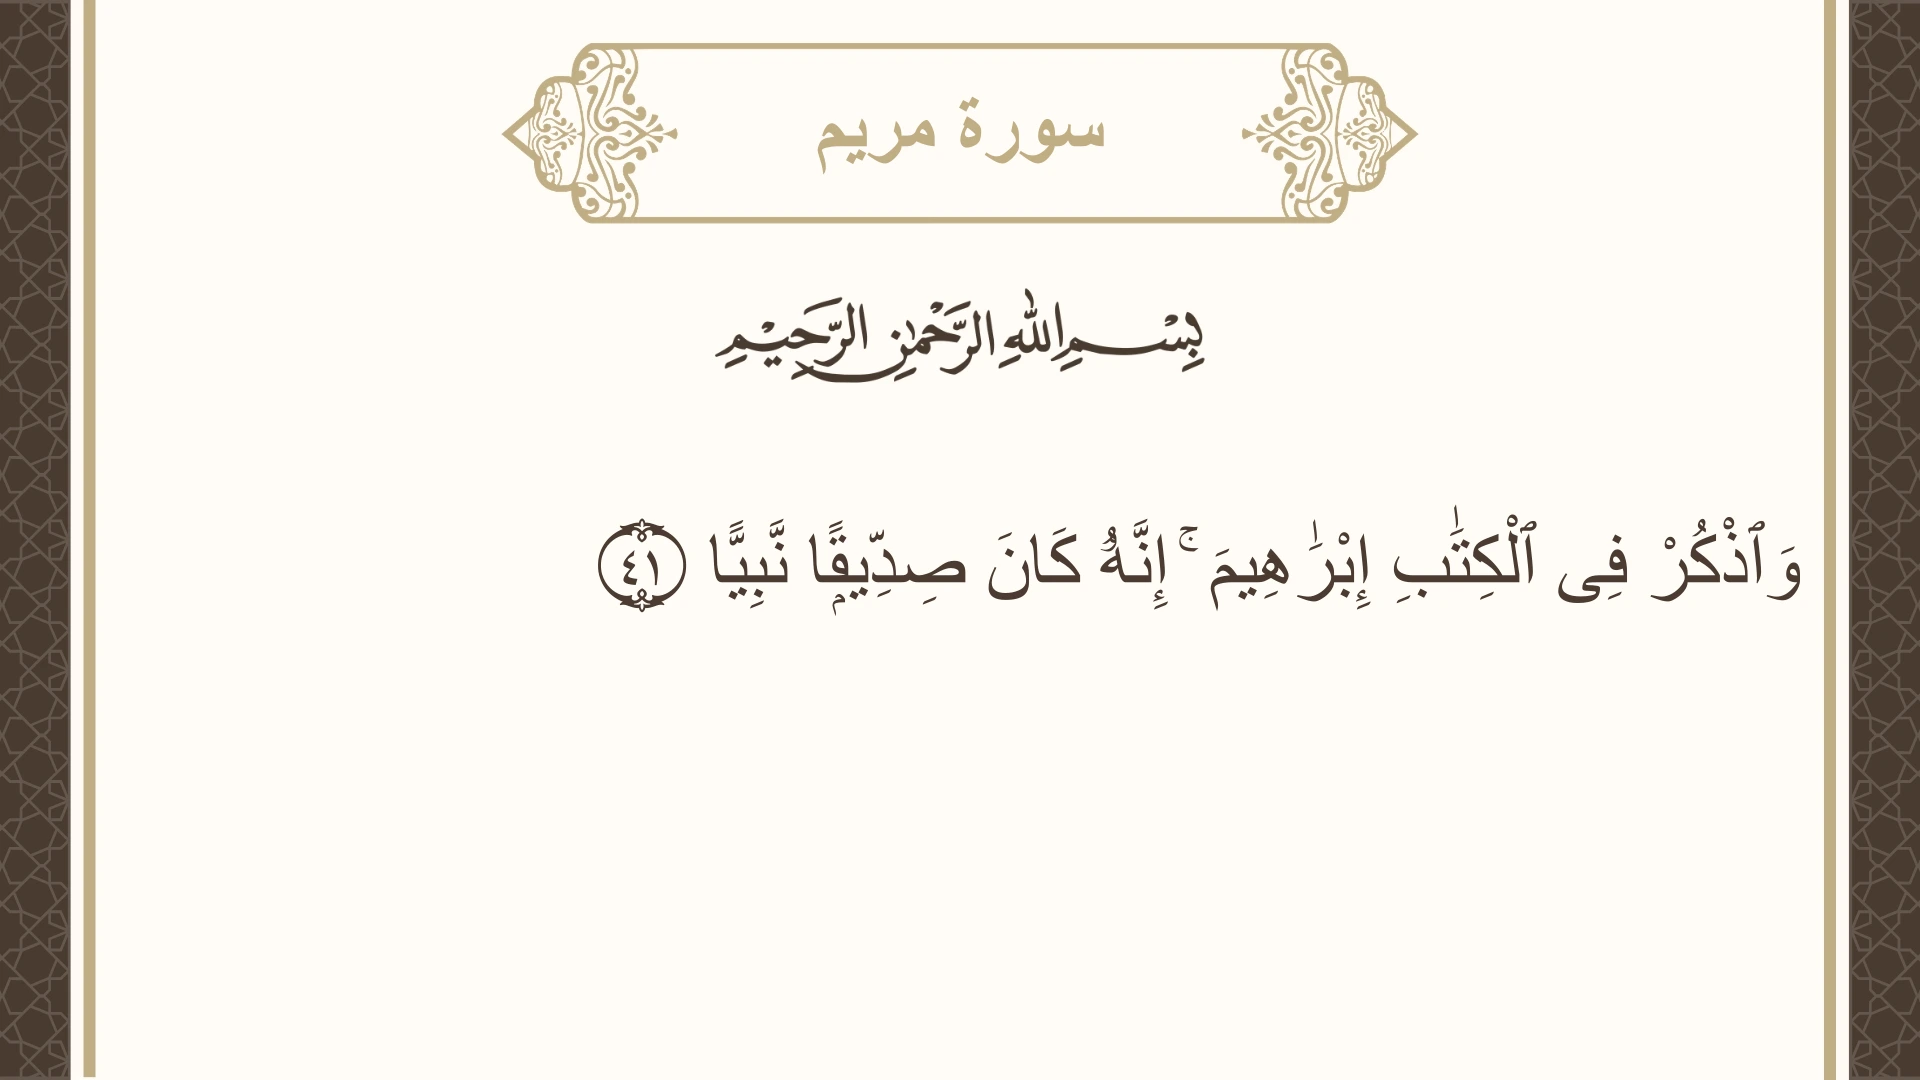 سورة مريم
بِسْمِ اللهِ الرَّحْمٰنِ الرَّحِيْمِ
وَٱذْكُرْ فِى ٱلْكِتَٰبِ إِبْرَٰهِيمَ ۚ إِنَّهُۥ كَانَ صِدِّيقًۭا نَّبِيًّا ٤١